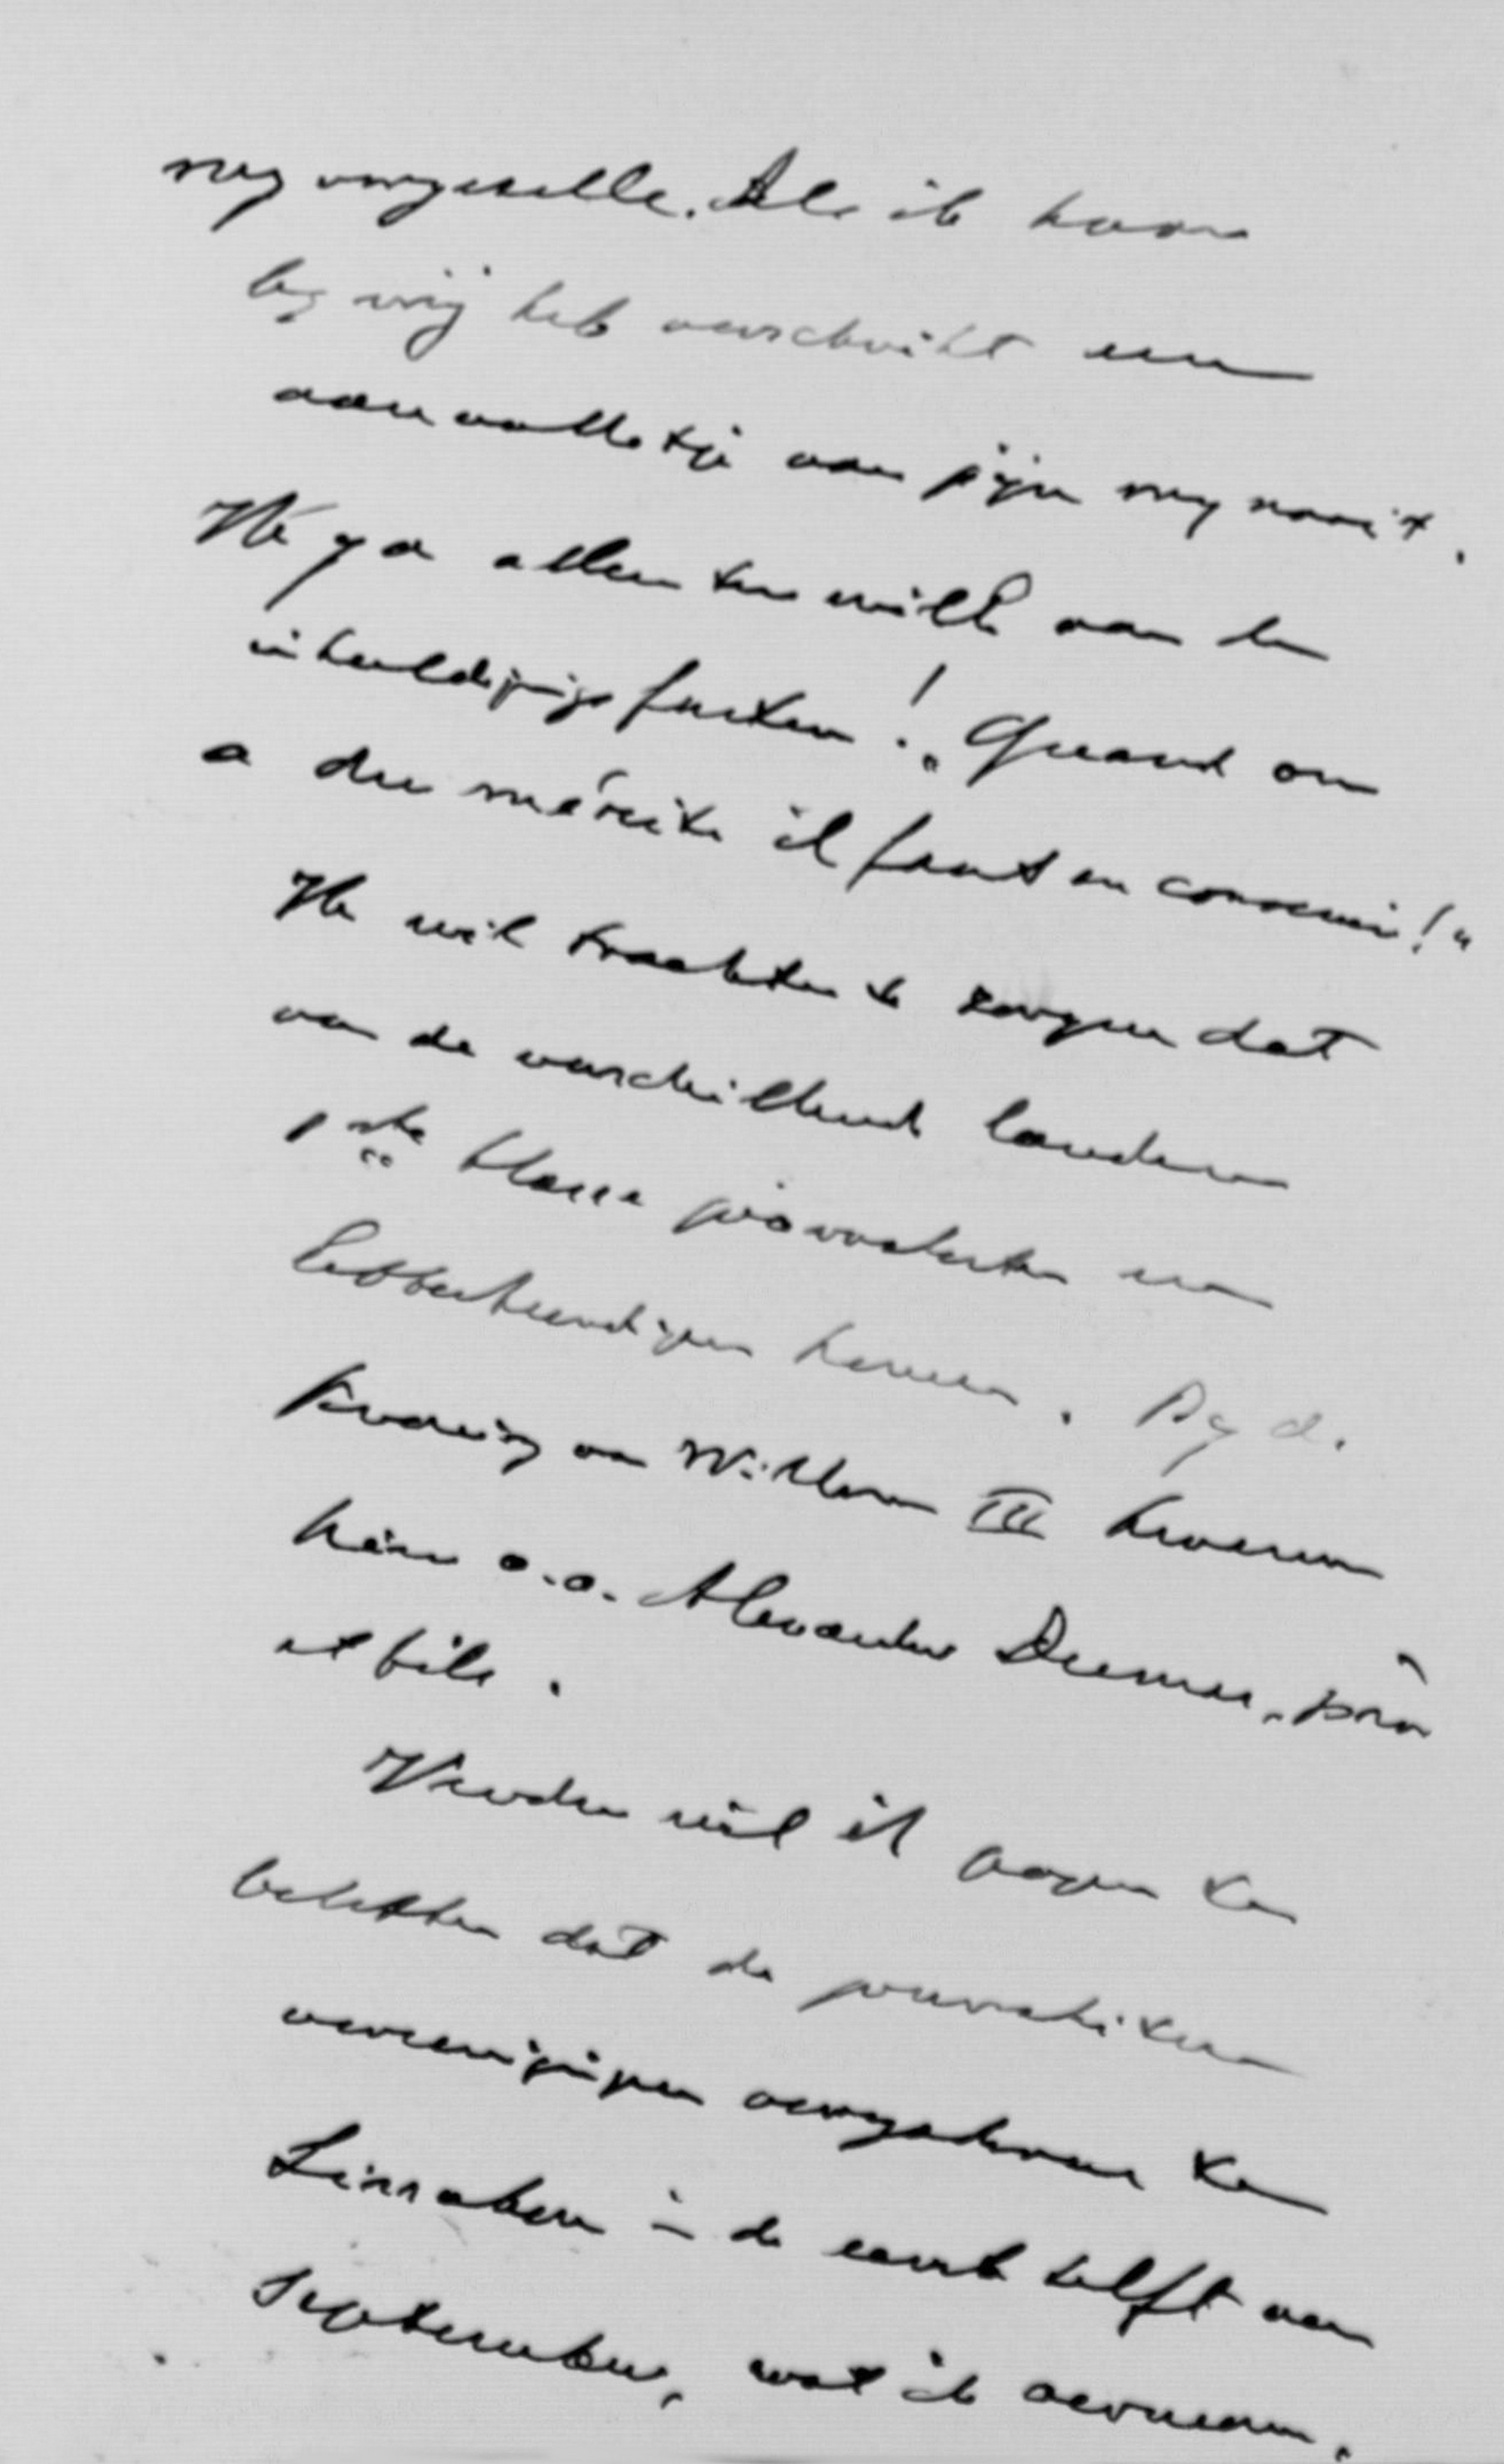 my vergezelle. Als ik haar
by mij heb verschrikt een
aanvalletje van pijn my nooit.
Ik ga alleen ten wille van de
inhuldigingsfeesten! „Quand on
a du mérite il faut en convenir!"
Ik wil trachten te zorgen dat
van de verschillende landen
1ste klasse journalisten en
letterkundigen komen. By d.
Kroning van Willem III kwamen
hier o.a. Alexander Dumas, père
et fils.
Verder wil ik pogen te
beletten dat de journalisten
vereenigingen vergaderen te
Lissabon in de eerste helft van
September, wat ik verneem.